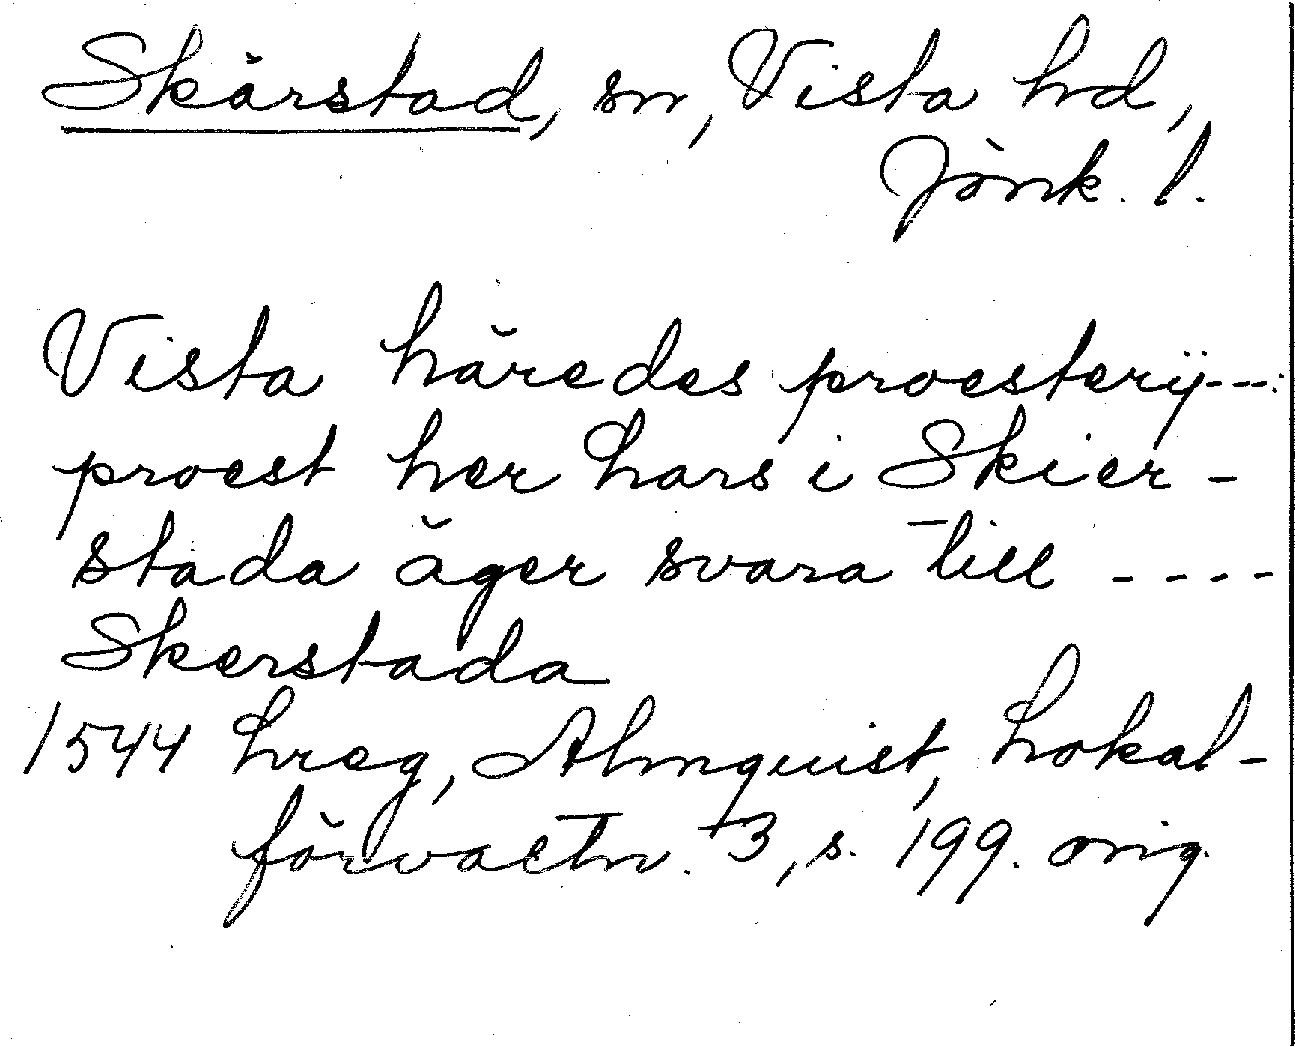 Skärstad, sn, Vista hd,
Jönk. l.
Vista häredes proesterij---:
proest her hars i Skier-
stada äger svara till ----
Skerstada
1544 hreg, Almquist, Lokal-
förvaltn. 3, s. 199. orig.